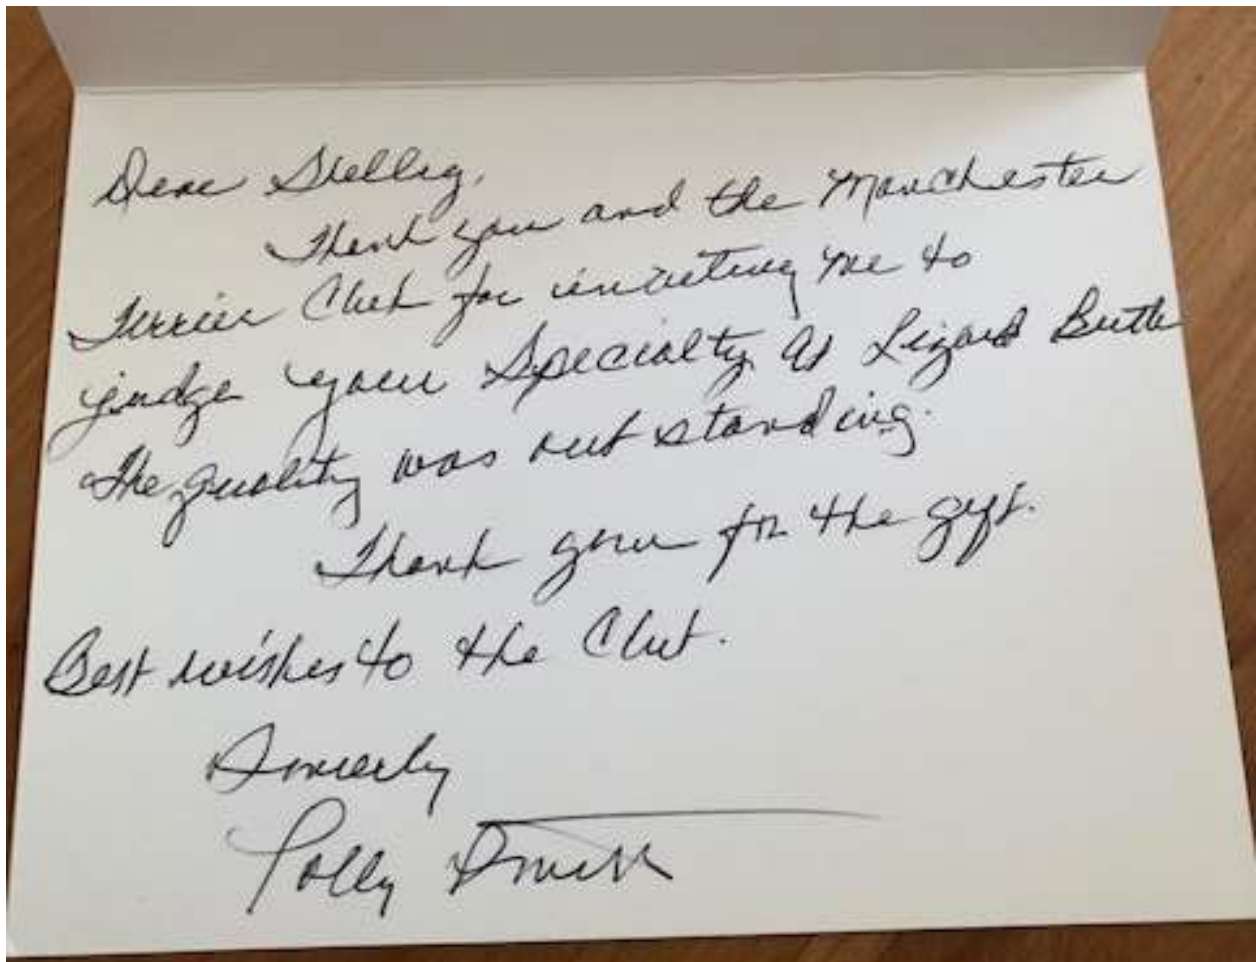 Dear Shelley,
Thank you and the Manchester
Terrier Club for inviting me to
judge your Specialty at Lizard Butte
The quality was outstanding.
Thank you for the gift.
Best wishes to the Club.
Sincerely
Polly